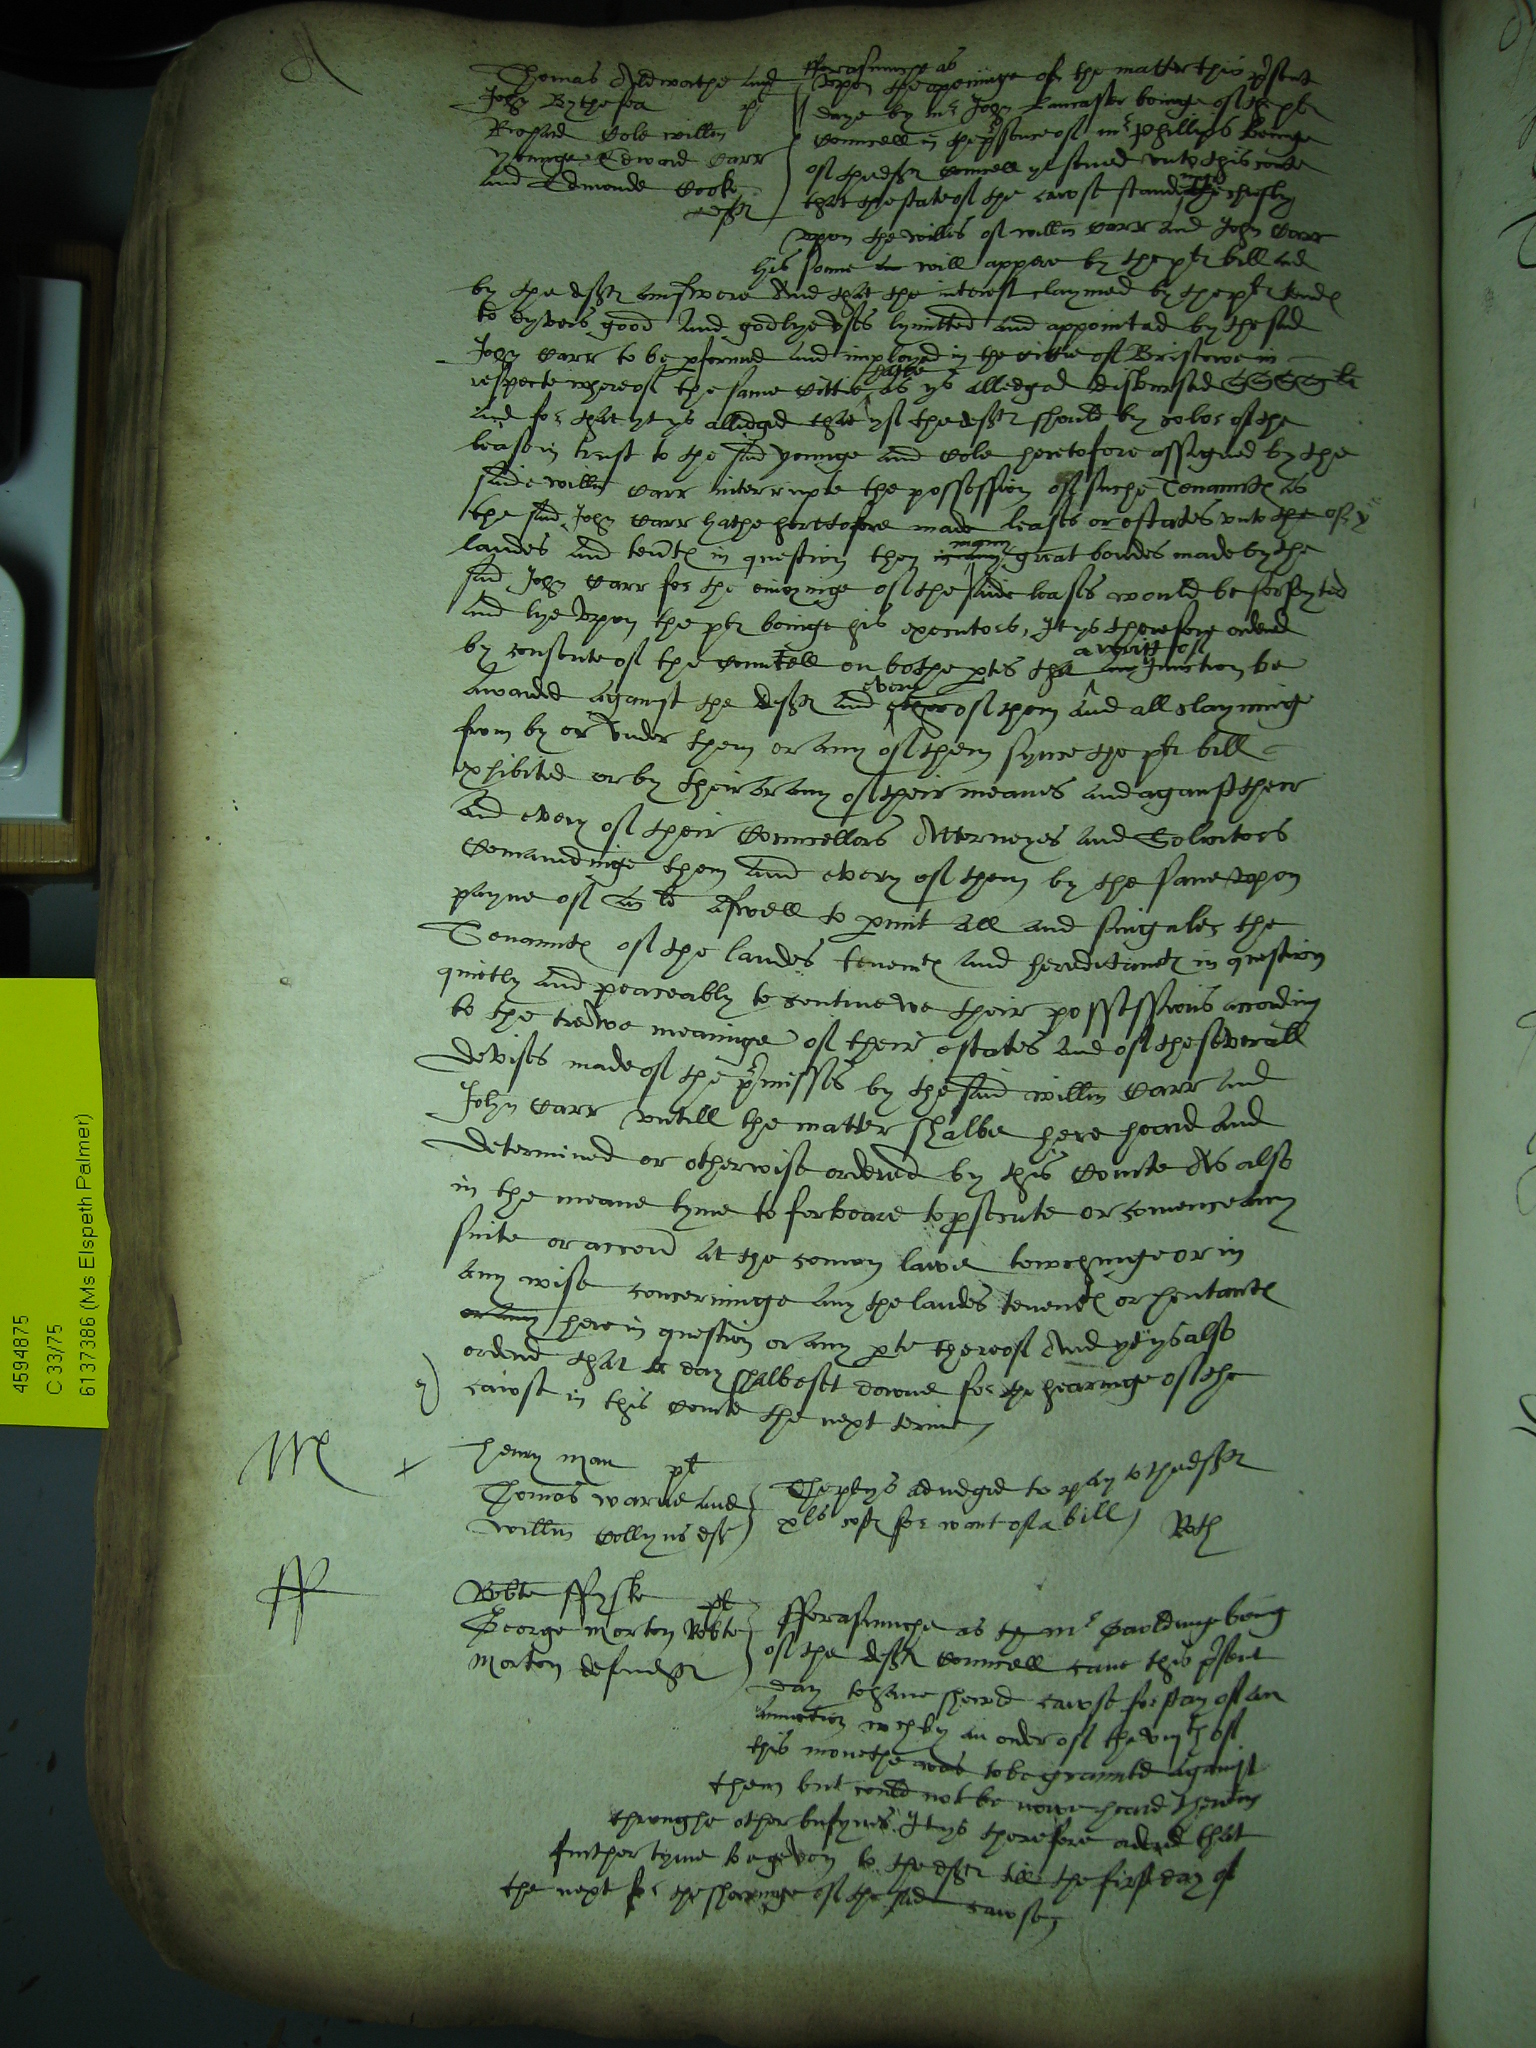 Thomas Aldworthe and
John Bythesea pl
Richard Cole willm
Younge Edward Carr
and Edmonde Cooke
deftes
fforasmuche as
vpon the openinge of the matter this pnt
daye by mr John Lancaster beinge of the pltes
councell in the psence of mr Phillips beinge
of the deftes councell yt semed vnto this courte
that the state of the cawse standeth chiefly
vpon the willes of willm Carr and John Carr
his sonne as will appere by the pltes bill and
by the deftes answere And that the interest claymed by the pltes tende
to dyvers good and godlye vses lymitted and appointed by the said
John Carr to be pformed and imployed in the cittie of Bristowe in
respecte whereof the same cittie hathe as ys alledged disbursed
and for that yt ys alledged that yf the deftes should by color of the
lease in trust to the said Younge and Cole heretofore assigned by the
saide willm Carr interrupte the possession of suche Tenauntes as
the said John Carr hathe heretofore made leases or estates vnto of ye
landes and tentes in question then many great bondes made by the
said John Carr for the enioyinge of the saide leases would be forfeyted
and lye vpon the pltes beinge his executors, It ys therefore ordered
by consente of the councell on bothe ptes that a writt of Iniunction be
awarded against the deftes and every of them and all clayminge
from by or vnder them or any of them synce the pltes bill
exhibited or by their or any of their meanes and against their
and every of their Councellors Attorneyes and Solicitors
Comaundinge them and every of them by the same vpon
payne of li aswell to pmit all and singuler the
Tenauntes of the landes tenemtes and hereditamtes in question
quietly and peaceably to continewe their possessions accordinge
to the trewe meaninge of their estates and of the severall
devises made of the pmisses by the said willm Carr and
John Carr vntill the matter shalbe here heard and
determined or otherwise ordered by this Courte As also
in the meane tyme to forbeare to psecute or comence any
suite or accon at the comon lawe towchinge or in
any wise concerninge any the landes tenemtes or hereditamtes
or any here in question or any pte thereof And yt ys also
ordered that a day shalbe set downe for the hearinge of the
cawse in this Courte the next terme
Henry Man plt
Thomas Warne and
willm Collyns deftes
The plt ys adiudged to pay to the deftes
xls costes for want of a bill
Robte ffyske plt
George Morton Robte
Morton defendtes
fforasmuche as mr Gaoldinge being
of the deftes councell came this psent
day to have shewed cawse for stay of an
Iniunction wch by an order of the of
this monethe was to be graunted against
them but could not be nowe heard therein
throughe other busynes It ys therefore ordered that
further tyme be geven to the deftes till the first day of
the next for the shewinge of the said cawse
4594875
C 33/75
6137386 (Ms Elspeth Palmer)